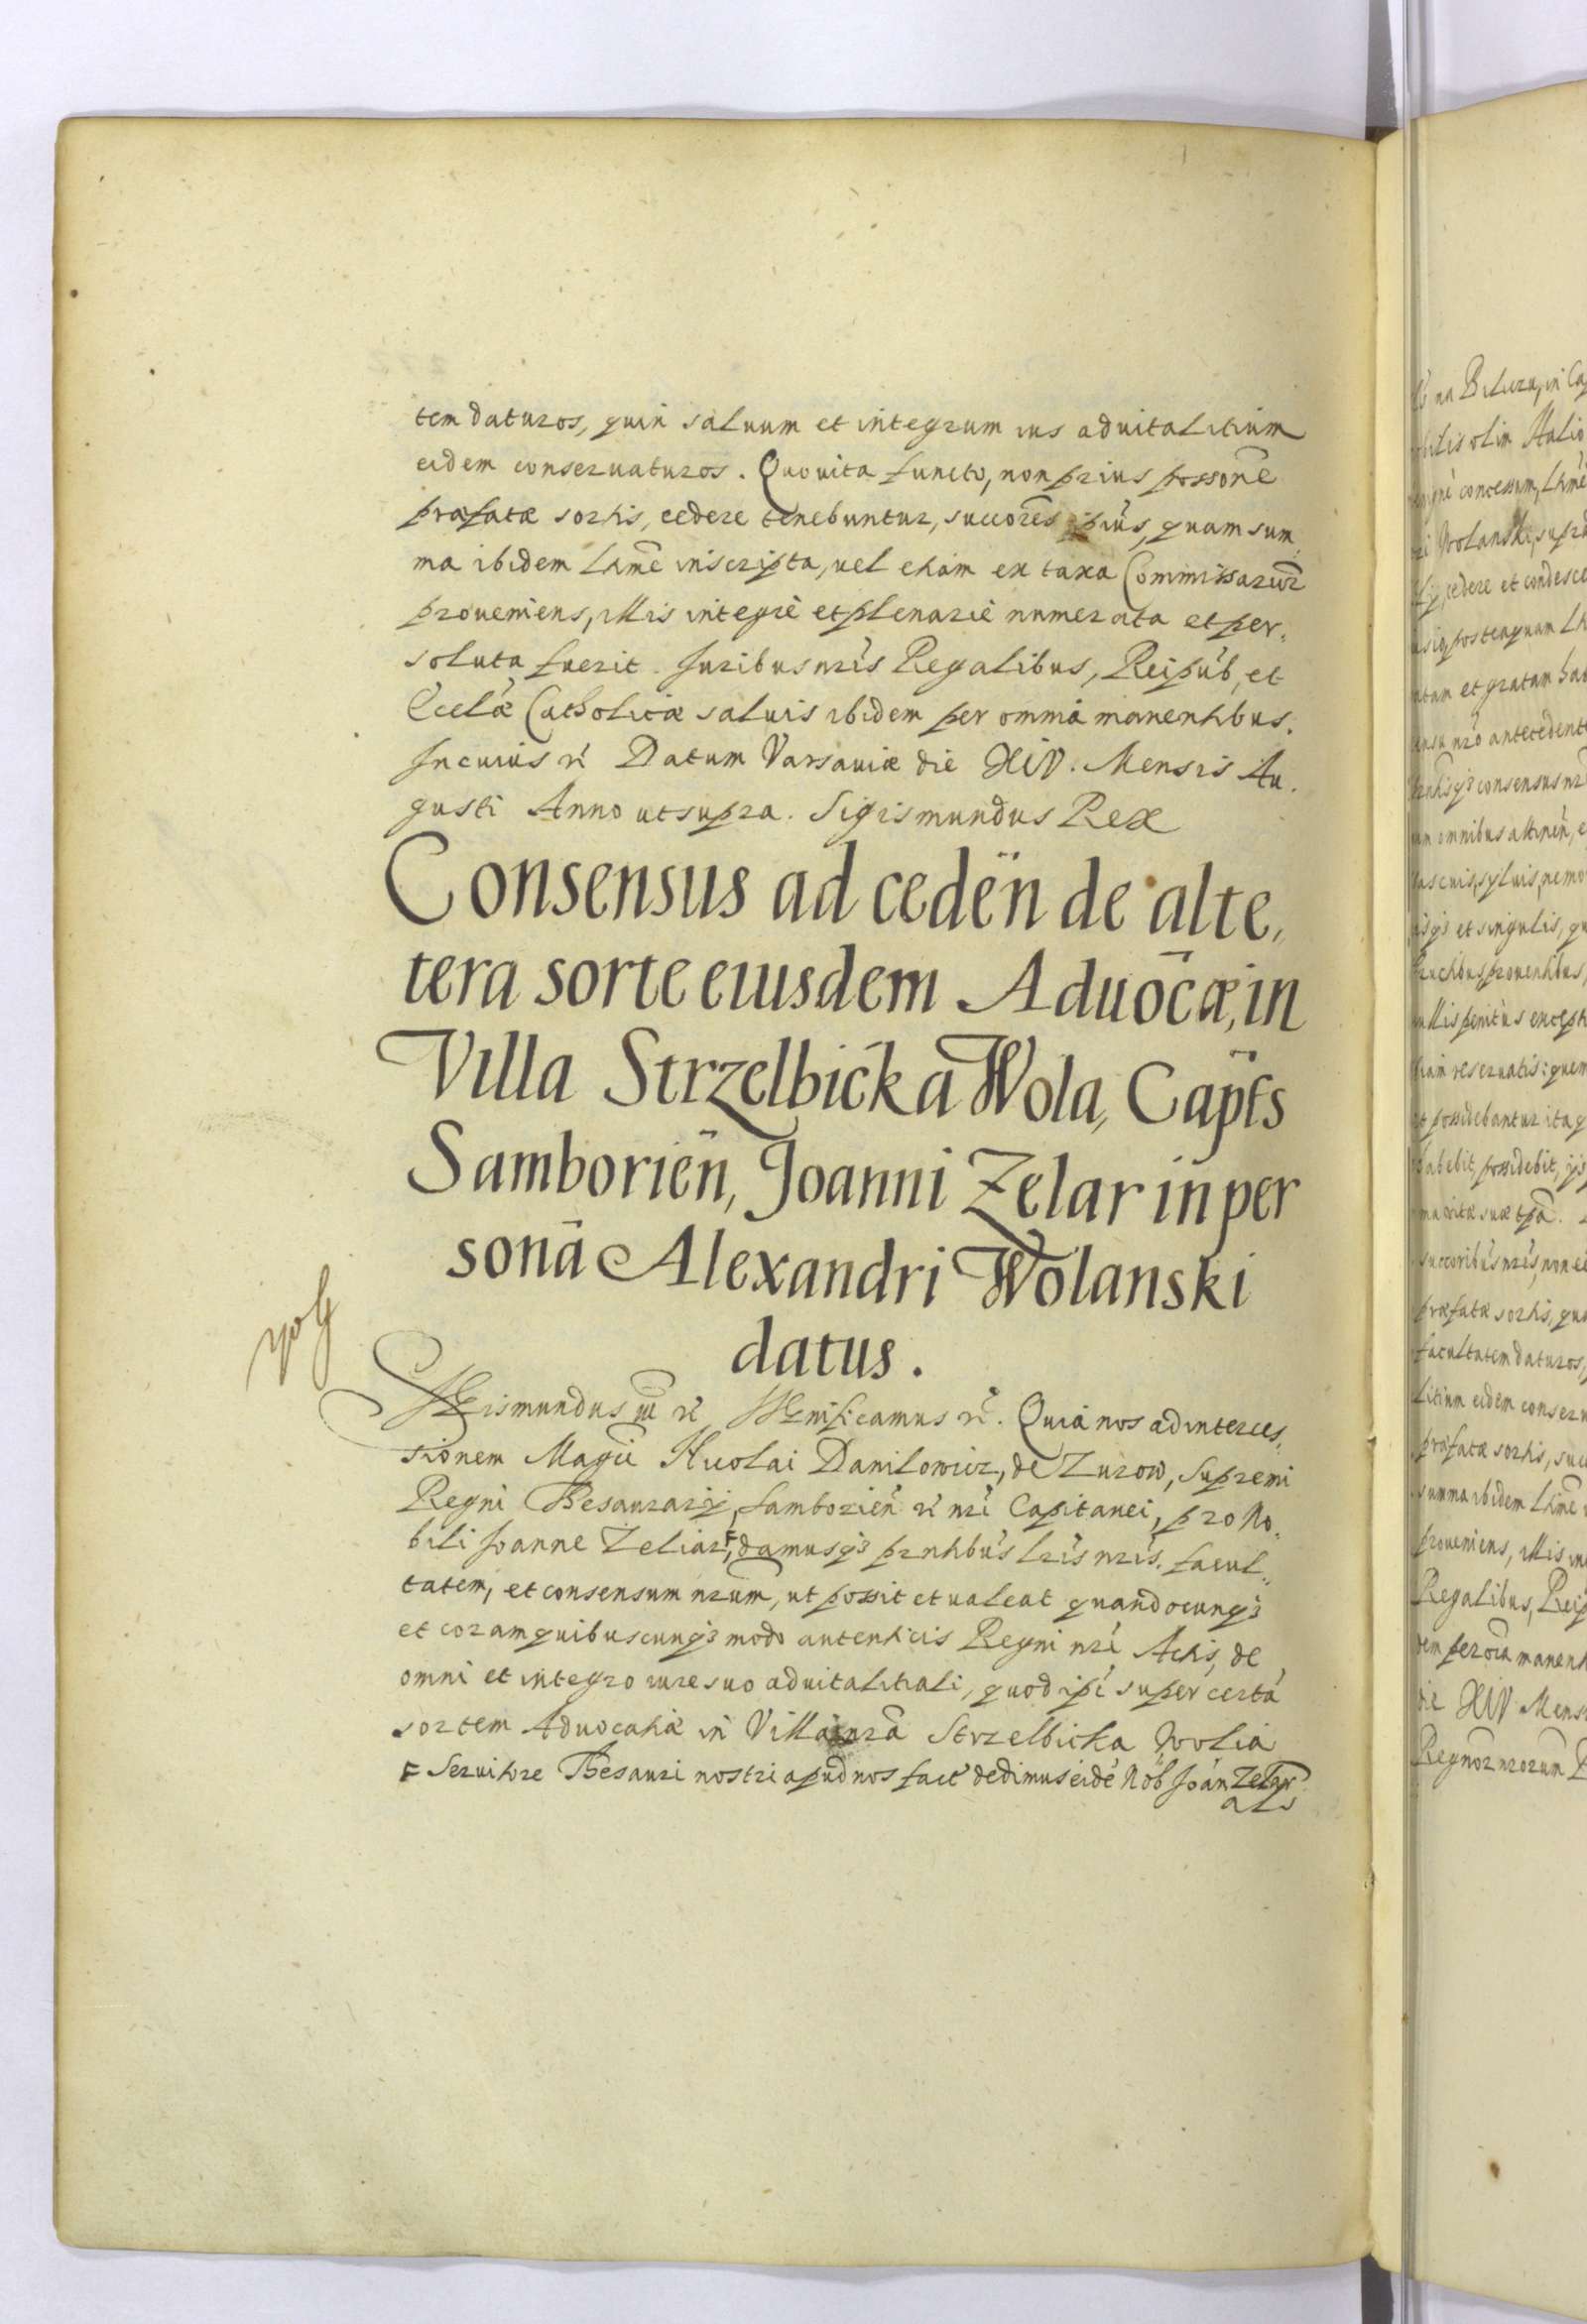 tem daturos, quin saluum et integrum ius aduitalitium
eidem conseruaturos. Quo vita functo, non prius possone
præfatæ sortis, cedere tenebuntur, succores ipius, quam sum
ma ibidem lhme inscripta, uel etiam ex taxa Commissarior
proueniens, illis integrè et plenariè numerata et per,
soluta fuerit. Iuribus nris Regalibus, Reipub, et
Ecclæ Catholicæ saluis ibidem per omnia manentibus.
In cuius rei Datum Varsauiæ die XIV. Mensis Au.
gusti Anno ut supra. Sigismundus Rex
Consensus ad ceden de alte,
tera sorte eiusdem Aduocæ, in
Villa Strzelbicka Wola, Capts
Samborien, Joanni Zelar in per
sona Alexandri Wolanski
datus.
Sigismundus III rc Significamus rc. Quia nos ad interces,
sionem Magci Nicolai Danilowicz, de Zurow, Supremi
Regni Thesaurarij, Samborien rc nri Capitanei, pro No,
bili Joanne Zeliar, F damusq3 prntibus lris nris, facul,
tatem, et consensum nrum, ut possit et ualeat quandocunq3
et coram quibuscunq3 modo autenticis Regni nri Actis, de
omni et integro iure suo aduitalitiali, quod ipi super certa
sortem Aduocatiæ in Villa nra Strzelbicka Wolia
F Seruitore Thesauri nostri apud nos fact dedimus eide Nob Joan Zelar
als